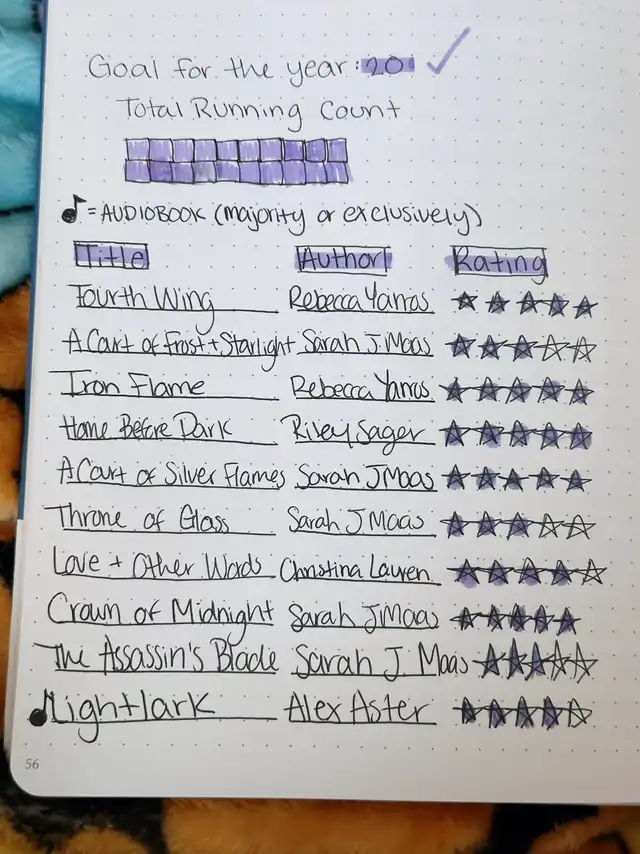 Goal for the year: 20 ✓
Total Running Count
♪ = AUDIOBOOK (majority or exclusively)
Title Author Rating
Fourth Wing Rebecca Yarros ★★★★★
A Court of Frost + Starlight Sarah J. Maas ★★★☆☆
Iron Flame Rebecca Yarros ★★★★★
Home Before Dark Riley Sager ★★★★★
A Court of Silver Flames Sarah J Maas ★★★★★
Throne of Glass Sarah J Maas ★★★☆☆
Love + Other Words Christina Lauren ★★★★☆
Crown of Midnight Sarah J Maas ★★★★★
The Assassin's Blade Sarah J. Maas ★★★☆☆
♪ Nightlark Alex Aster ★★★★☆
56